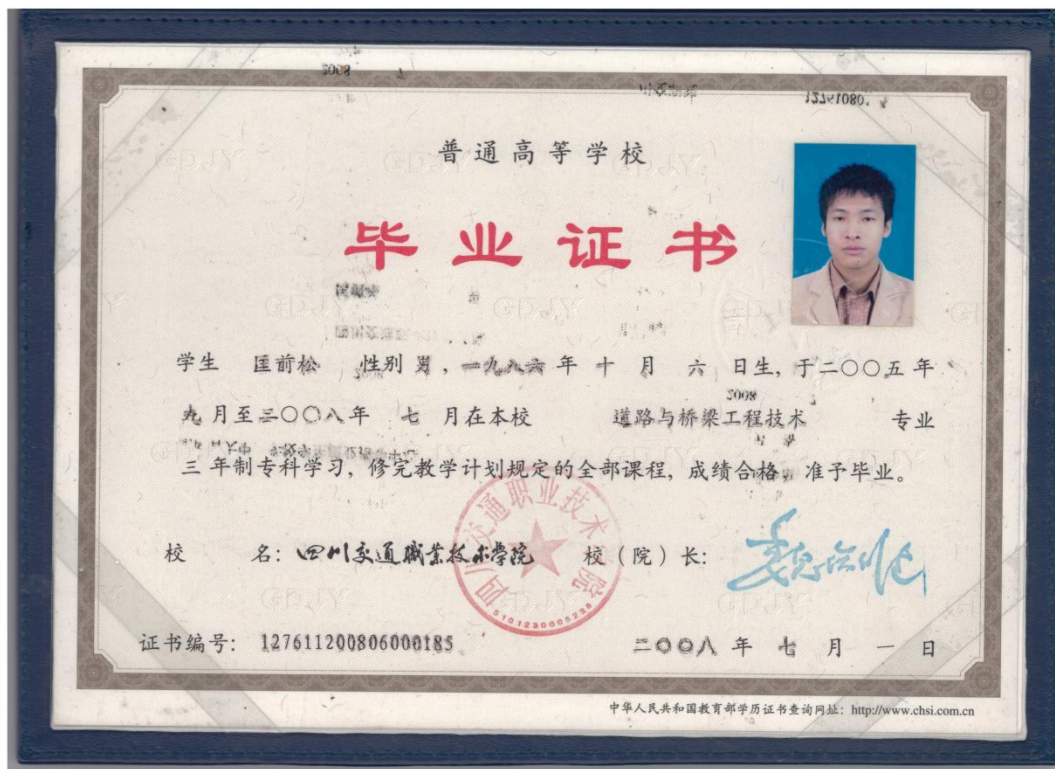 普通高等学校
毕业证书
学生 匡前松 性别 男，一九八六年 十 月 六 日生，于二〇〇五年
九 月至二〇〇八年 七 月在本校 道路与桥梁工程技术 专业
三 年制专科学习，修完教学计划规定的全部课程，成绩合格，准予毕业。
校 名：四川交通職業技术學院 校（院）长：
四川交通职业技术学院
5101230005236
证书编号：127611200806000185 二〇〇八 年 七 月 一 日
中华人民共和国教育部学历证书查询网址：http://www.chsi.com.cn